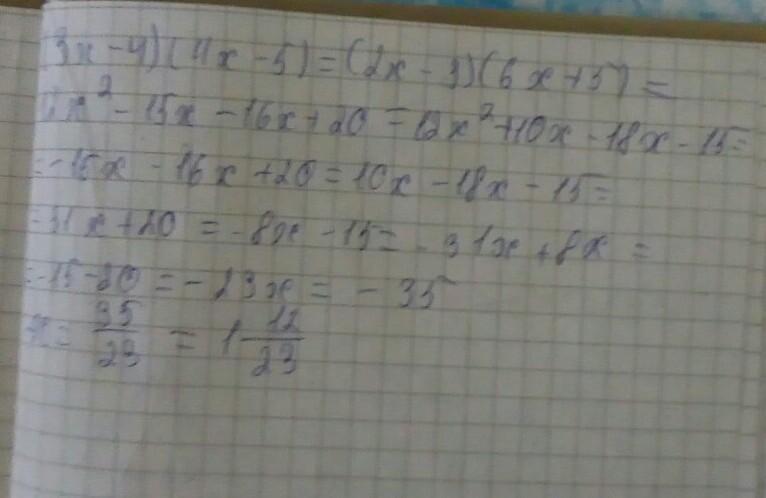 (3x-4)(4x-5)=(2x-3)(6x+5)=
12x²-15x-16x+20=12x²+10x-18x-15=
=-15x-16x+20=10x-18x-15=
-31x+20=-8x-15=-31x+8x=
=-15-20=-23x=-35
x=35/23=1 12/23